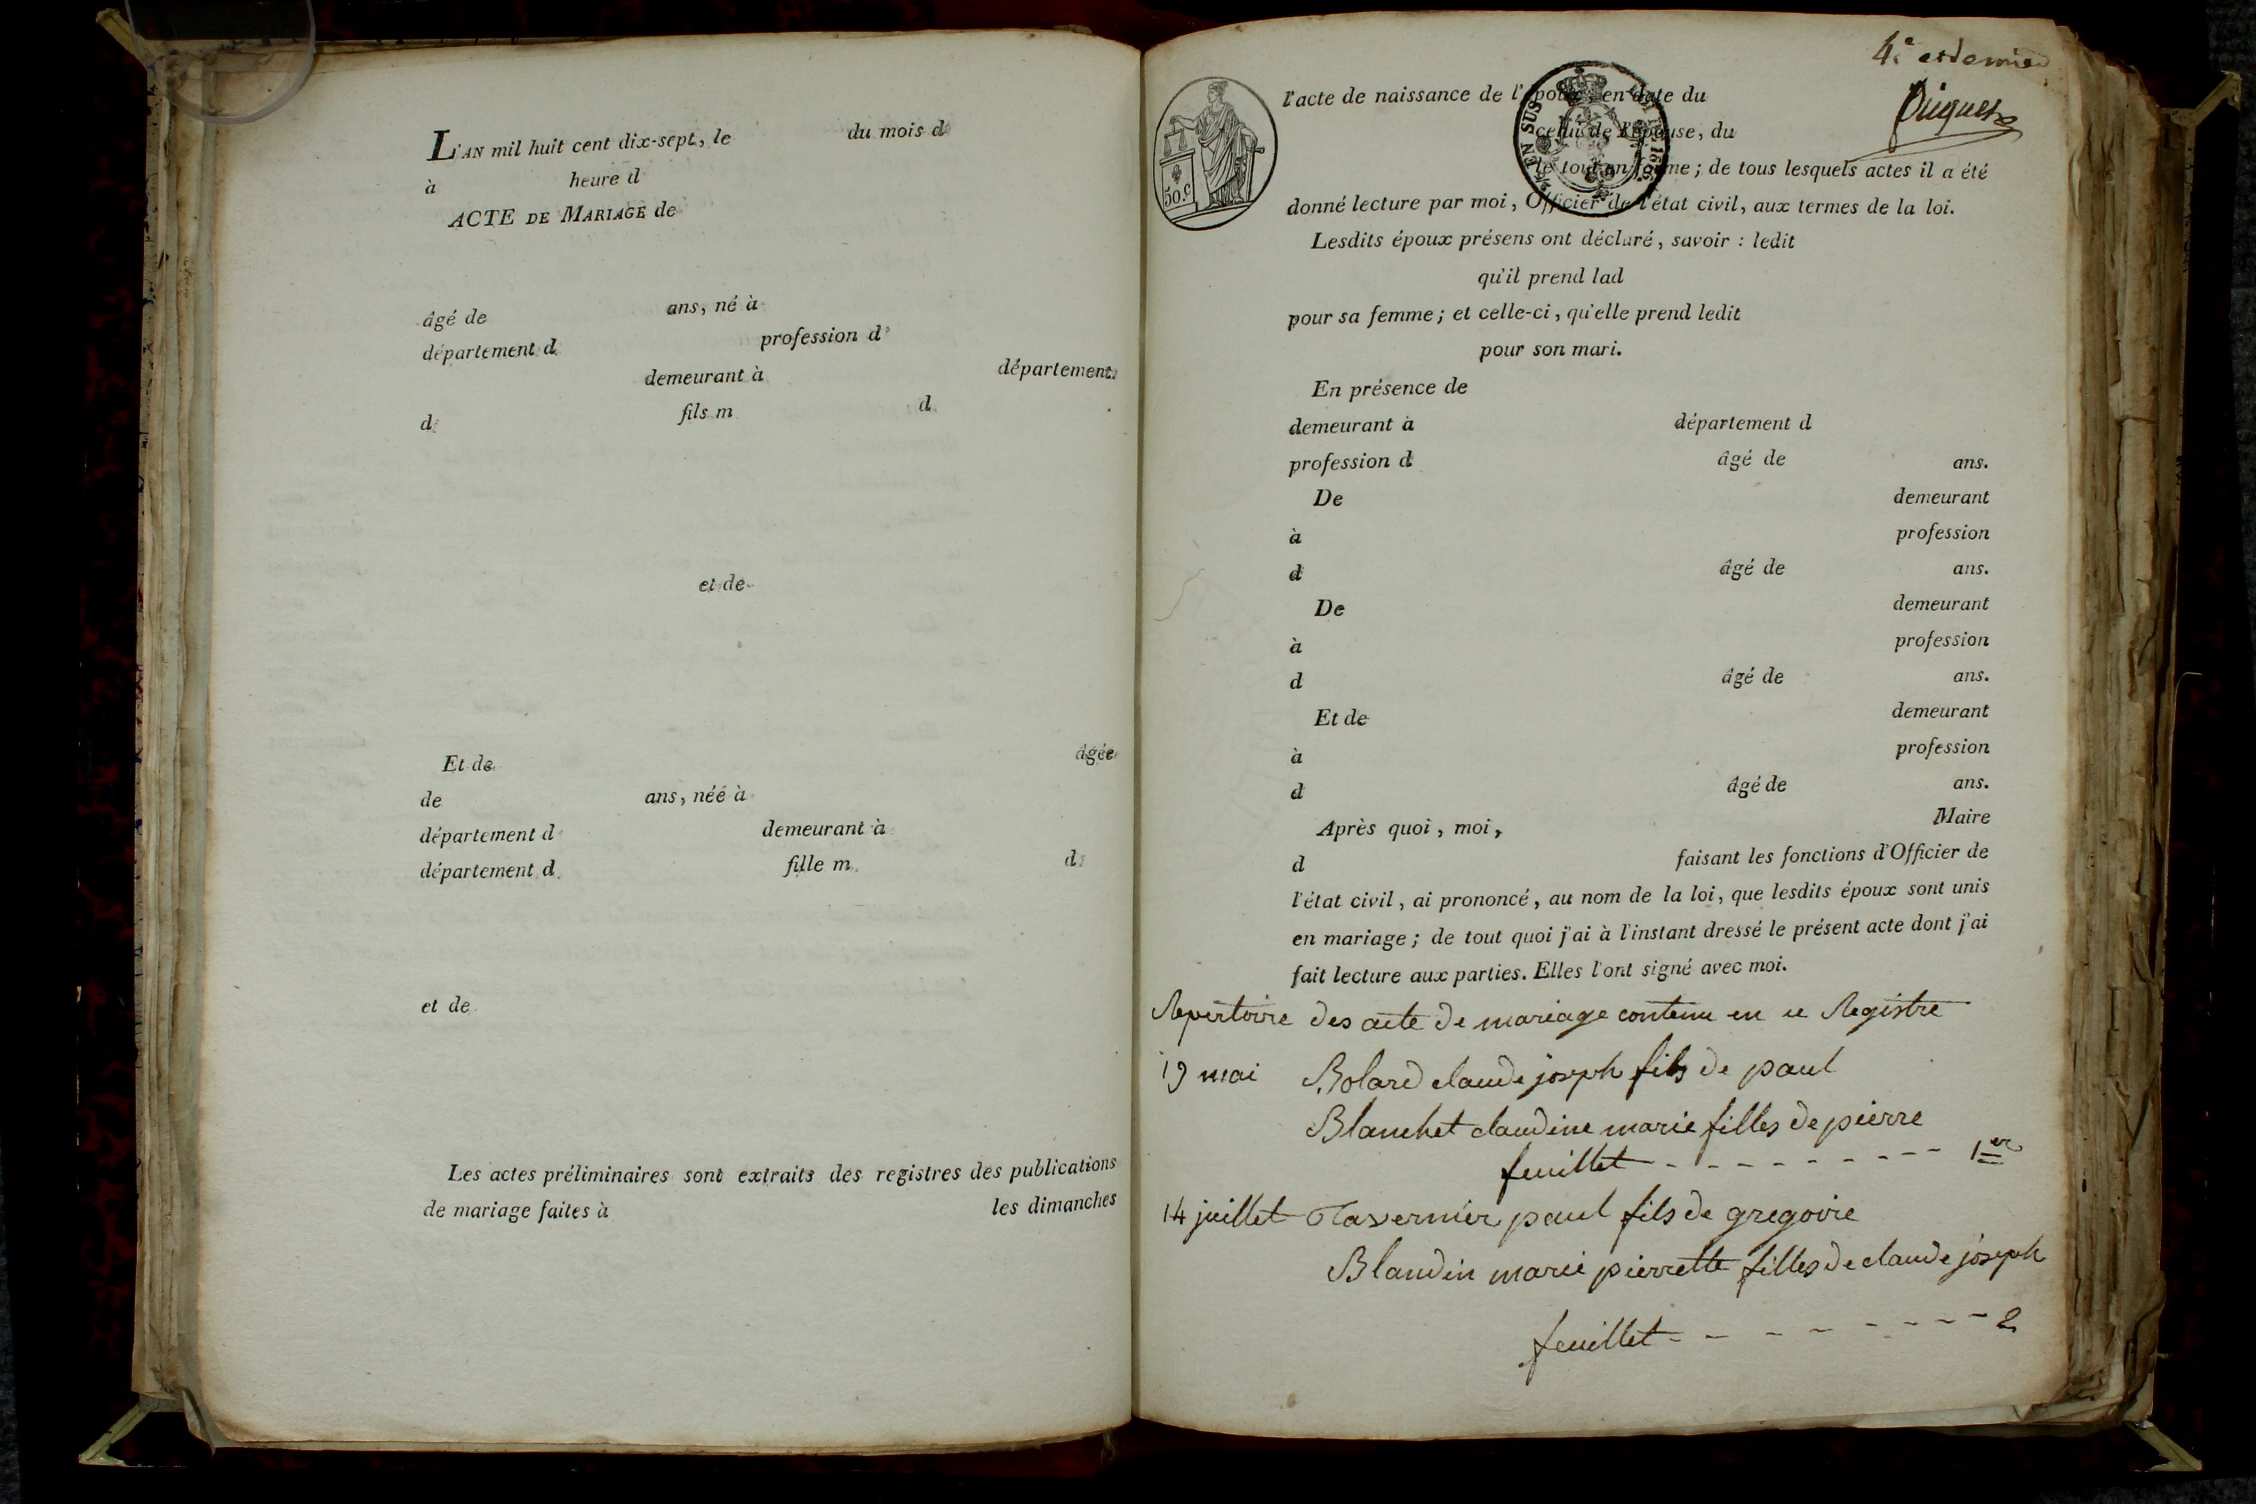 L'AN mil huit cent dix-sept, le du mois d
à heure d
ACTE DE MARIAGE de
âgé de ans, né à
département d profession d
demeurant à département
d fils m d
et de
Et de âgée
de ans, néé à
département d demeurant à
département d fille m d
et de
Les actes préliminaires sont extraits des registres des publications
de mariage faites à les dimanches
4e et dernier
l'acte de naissance de l'époux, en date du
celui de l'épouse, du
le tout en forme; de tous lesquels actes il a été
donné lecture par moi, Officier de l'état civil, aux termes de la loi.
50.c
EN SUS
Lesdits époux présens ont déclaré, savoir : ledit
qu'il prend lad
pour sa femme; et celle-ci, qu'elle prend ledit
pour son mari.
En présence de
demeurant à département d
profession d âgé de ans.
De demeurant
à profession
d âgé de ans.
De demeurant
à profession
d âgé de ans.
Et de demeurant
à profession
d âgé de ans.
Après quoi, moi, Maire
d faisant les fonctions d'Officier de
l'état civil, ai prononcé, au nom de la loi, que lesdits époux sont unis
en mariage; de tout quoi j'ai à l'instant dressé le présent acte dont j'ai
fait lecture aux parties. Elles l'ont signé avec moi.
Repertoire des acte de mariage contenu en ce Registre
19 mai Bolard claude joseph fils de paul
Blanchet claudine marie filles de pierre
feuillet - - - - - - - - - 1er
14 juillet Tavernier paul fils de gregoire
Blandin marie pierrette filles de claude joseph
feuillet - - - - - - - - 2